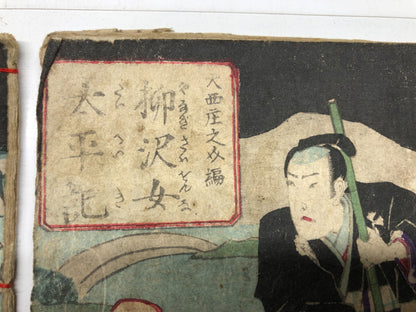 大西庄之助編
柳沢女
やなぎさはをんな
太平記
たいへいき